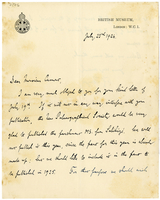 BRITISH MUSEUM,
LONDON: W.C.1.
July 25th 1924
Dear Monsieur Cumont,
I am very much obliged to you for your kind letter of
July 19th. If it will not in any way interfere with your
publication, the New Palaeographical Society would be very
glad to publish the parchment MS. from Salihiyeh. We will
not publish it this year since the part for this year is already
made up; but we should like to include it in the part to
be published in 1925. For this purpose we should need